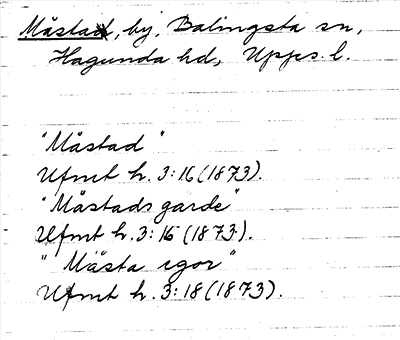 Måstad, by, Balingsta sn,
Hagunda hd, Upps. l.
"Måstad"
Ufmt h. 3:16 (1873).
"Måstads gärde"
Ufmt h. 3:16 (1873).
"Mästa egor"
Ufmt h. 3:18 (1873).